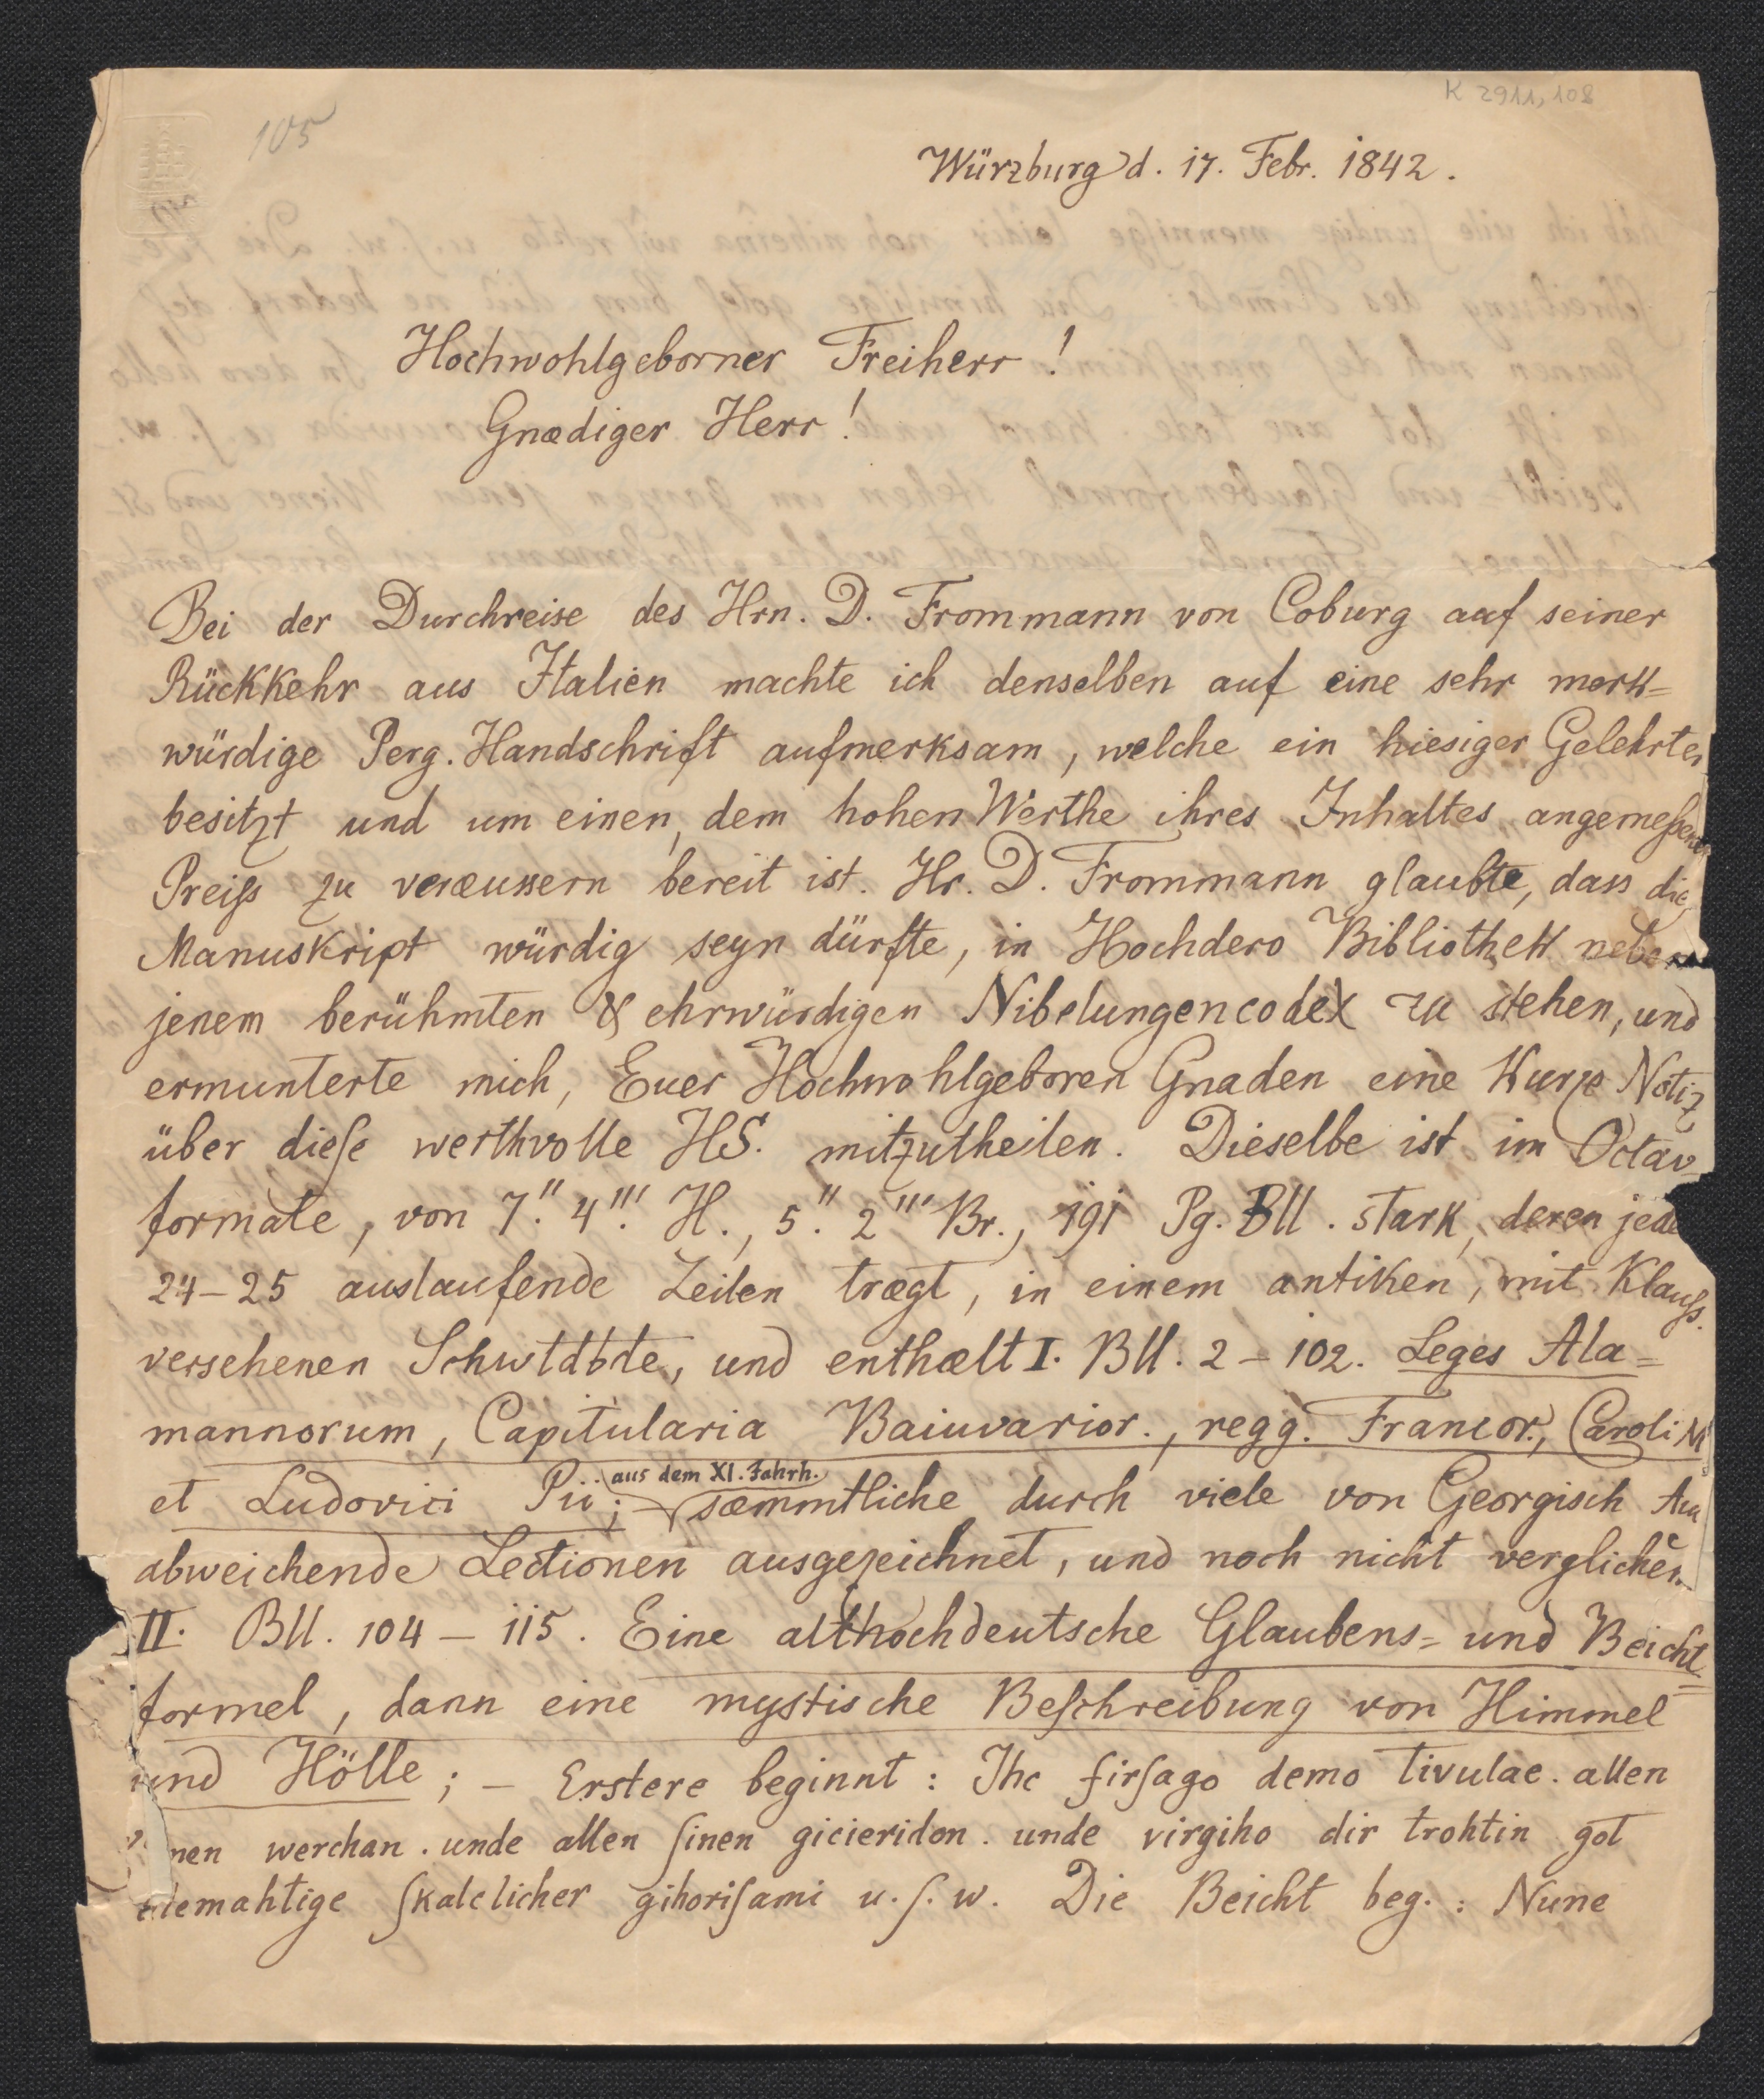 K 2911, 108
105
Würzburg d. 17. Febr. 1842.
Hochwohlgeborner Freiherr!
Gnædiger Herr!
Bei der Durchreise des Hrn. D. Frommann von Coburg auf seiner
Rückkehr aus Italien machte ich denselben auf eine sehr merk=
würdige Perg. Handschrift aufmerksam, welche ein hiesiger Gelehrter
besitzt und um einen, dem hohen Werthe ihres Inhaltes angemeßenen
Preiß zu veræussern bereit ist. Hr. D. Frommann glaubte, dass die
Manuskript würdig seyn dürfte, in Hochdero Bibliothek neben
jenem berühmten & ehrwürdigen Nibelungencodex zu stehen, und
ermunterte mich, Euer Hochwohlgeboren Gnaden eine Kurze Notiz
über dieſe werthvolle HS. mitzutheilen. Dieselbe ist im Octav
formate, von 7." 4"'. H., 5." 2"' Br., 191 Pg. Bll. stark, deren jede
24–25 auslaufende Zeilen trægt, in einem antiken, mit Klauß.
versehenen und enthælt I. Bll. 2 – 102. Leges Ala=
mannorum, Capitularia Baiuvarior., regg. Francor., Caroli M
et Ludovici Pii; – aus dem XI. Jahrh. sæmmtliche durch viele von Georgisch
abweichende Lectionen ausgezeichnet, und noch nicht verglichen.
II. Bll. 104 – 115. Eine althochdeutsche Glaubens= und Beicht=
formel, dann eine mystische Beſchreibung von Himmel
und Hölle; – Erstere beginnt: Ihc firſago demo tivulae. allen
nen werchan. unde allen ſinen gicieridon. unde virgiho dir trohtin got
alemahtige ſkalclicher gihoriſami u. ſ. w. Die Beicht beg.: Nune